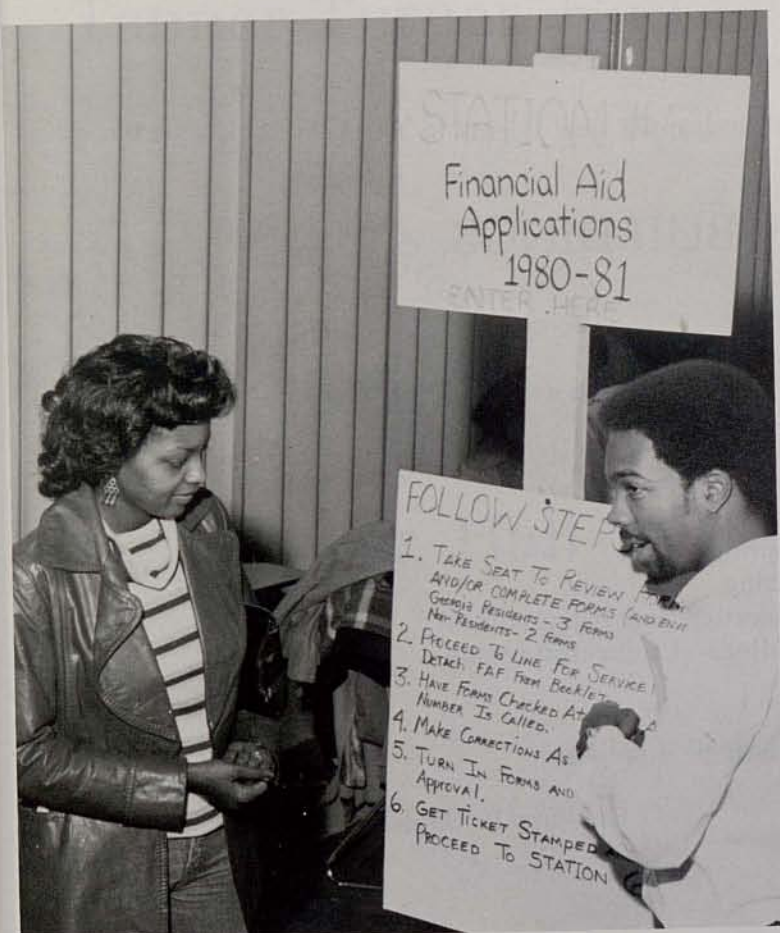 STATION
Financial Aid
Applications
1980-81
ENTER HERE
FOLLOW STEP
1. TAKE SEAT TO REVIEW
AND/OR COMPLETE FORMS (AND
Georgia Residents - 3 Forms
Non-Residents - 2 Forms
2. PROCEED TO LINE FOR SERVICE
DETACH FAF FROM Booklet
3. HAVE FORMS CHECKED At
NUMBER IS CALLED.
4. MAKE CORRECTIONS AS
5. TURN IN FORMS AND
Approval.
6. GET TICKET STAMPED
PROCEED TO STATION